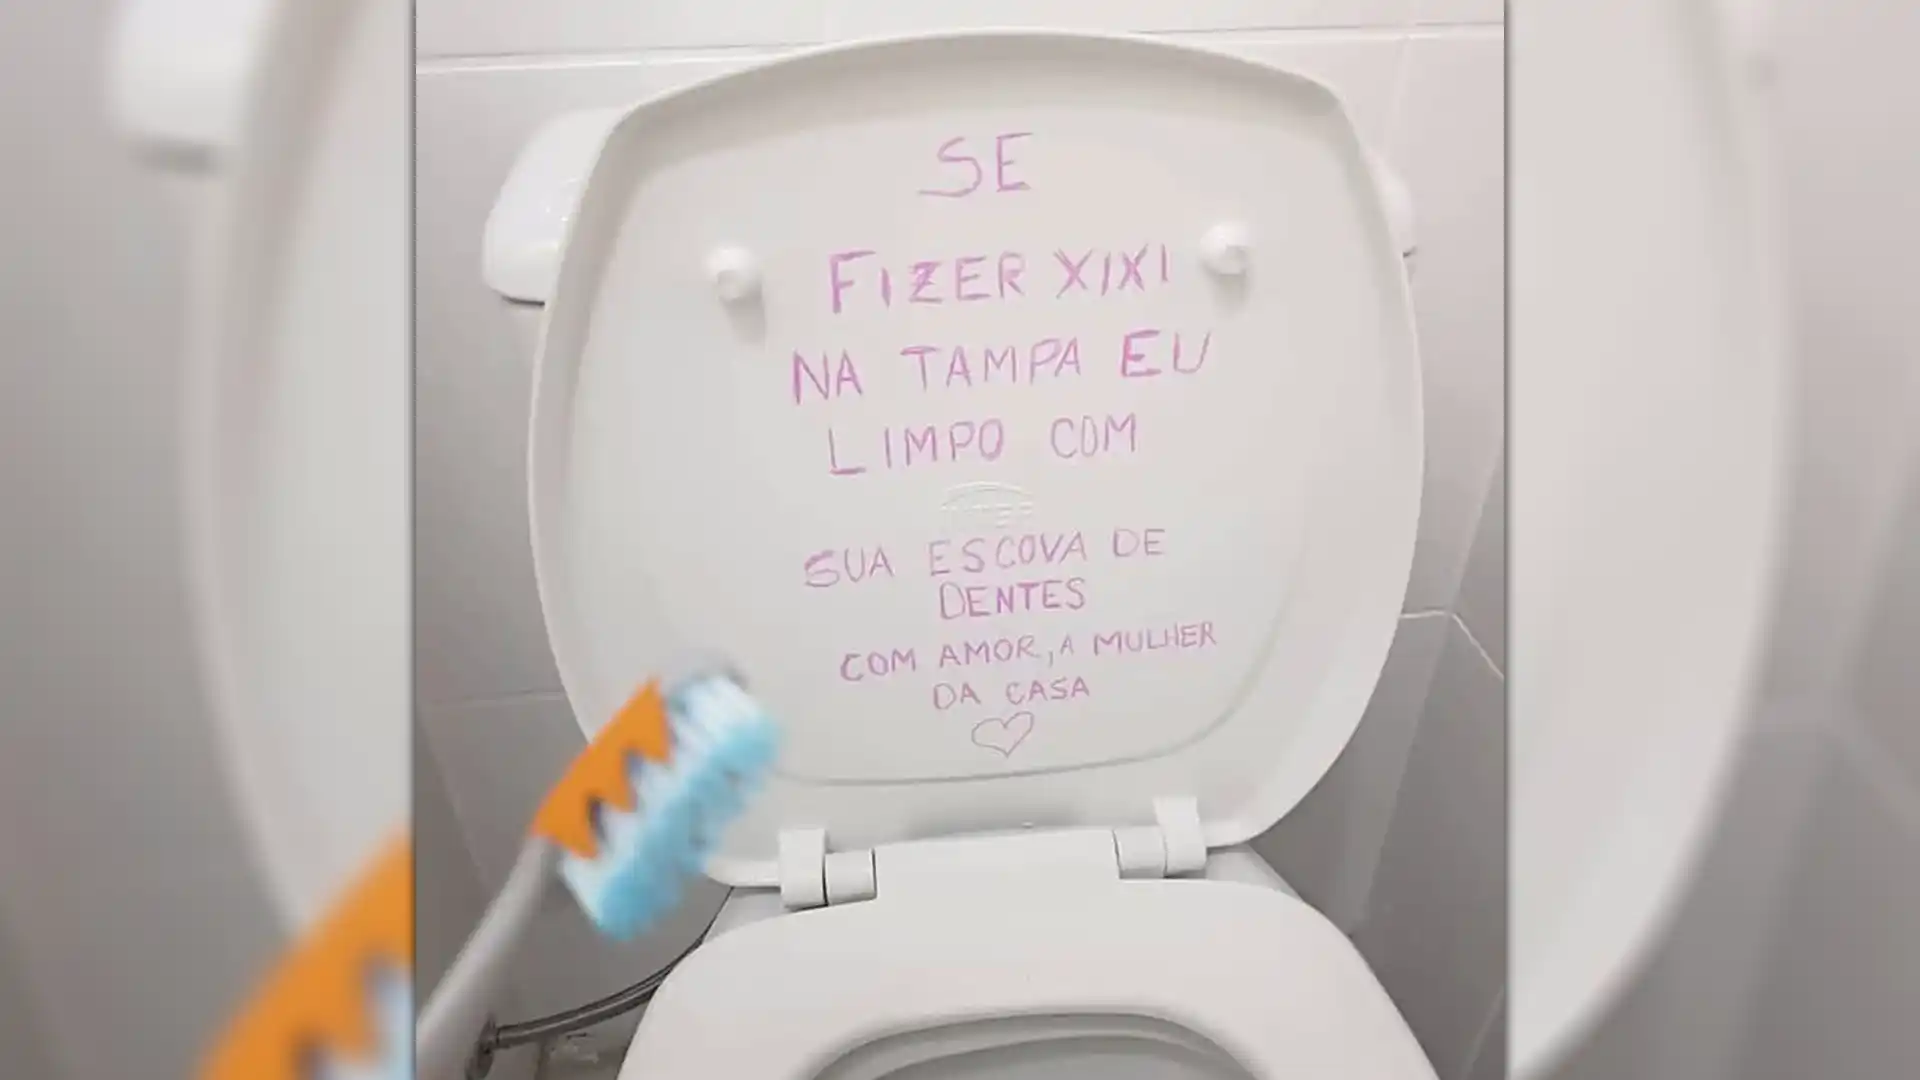 SE
FIZER XIXI
NA TAMPA EU
LIMPO COM
SUA ESCOVA DE
DENTES
COM AMOR, A MULHER
DA CASA